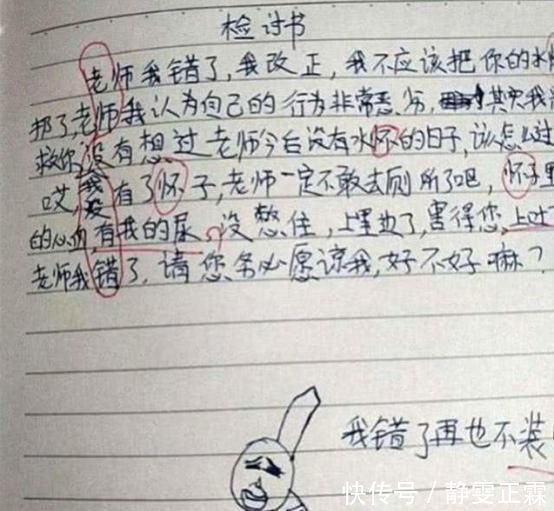 检讨书
老师我错了,我改正,我不应该把你的水
扔了,老师我认为自己的行为非常恶劣,其实我
救你没有想过老师今后没有水怀的日子,该怎么过
哎,我没有了怀子,老师一定不敢去厕所了吧,怀子里
的心血,有我的尿,没憋住,上里边了,害得您上吐
老师我错了,请您务必愿谅我,好不好嘛?
我错了再也不装
快传号/静雯正霖